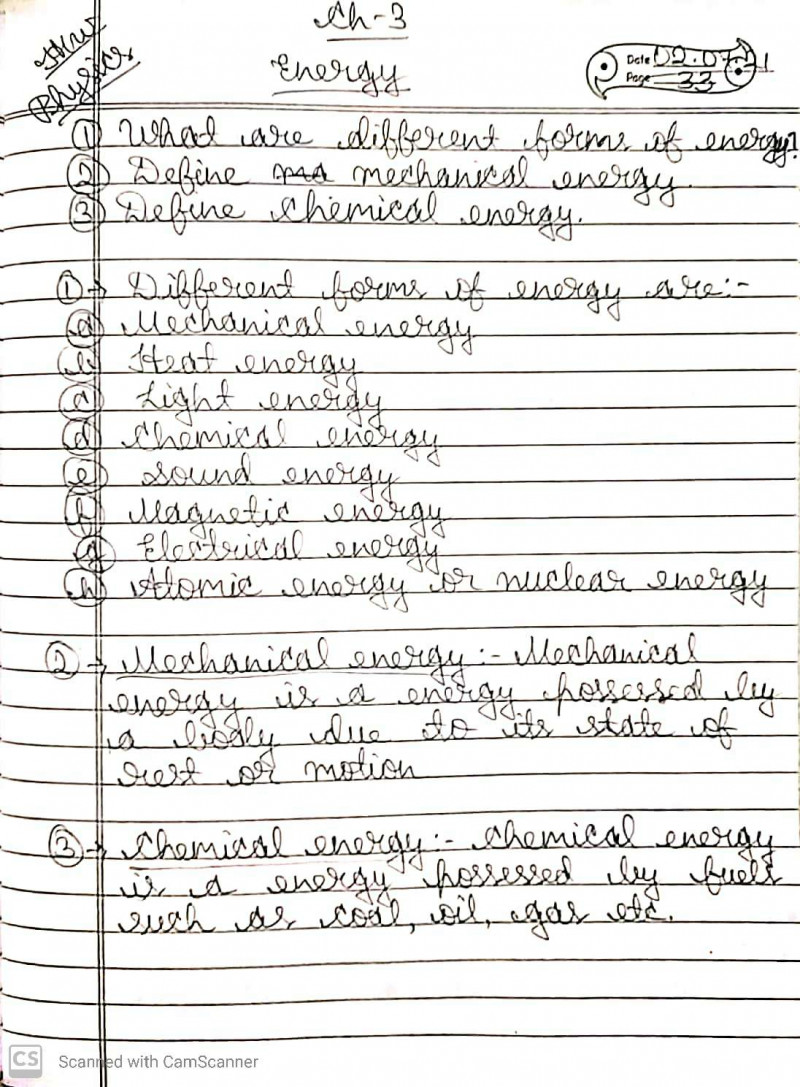 Ch-3
H.W
Physics
Energy
Date 02.07.21
Page 33
① What are different forms of energy?
② Define mechanical energy.
③ Define Chemical energy.
①→ Different forms of energy are:-
ⓐ Mechanical energy
ⓑ Heat energy
ⓒ Light energy
ⓓ Chemical energy
ⓔ Sound energy
ⓕ Magnetic energy
ⓖ Electrical energy
ⓗ Atomic energy or nuclear energy
②→ Mechanical energy:- Mechanical
energy is a energy possessed by
a body due to its state of
rest or motion
③→ Chemical energy:- Chemical energy
is a energy possessed by fuels
such as coal, oil, gas etc.
CS Scanned with CamScanner